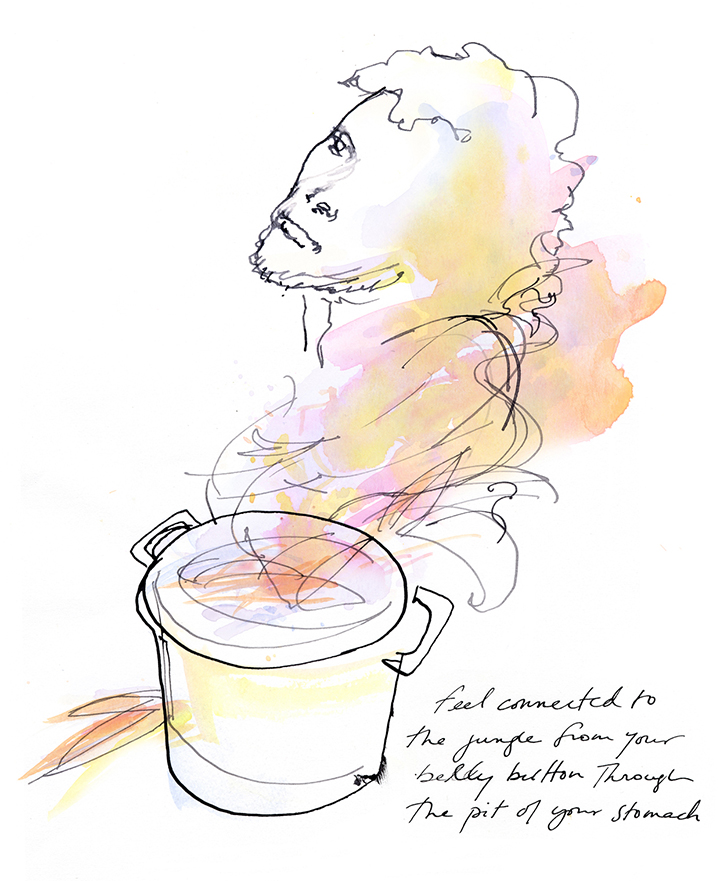 feel connected to
the jungle from your
belly button Through
the pit of your stomach